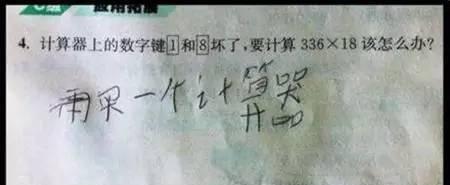 C组 应用拓展
4. 计算器上的数字键1和8坏了,要计算 336×18 该怎么办?
再买一个计算器